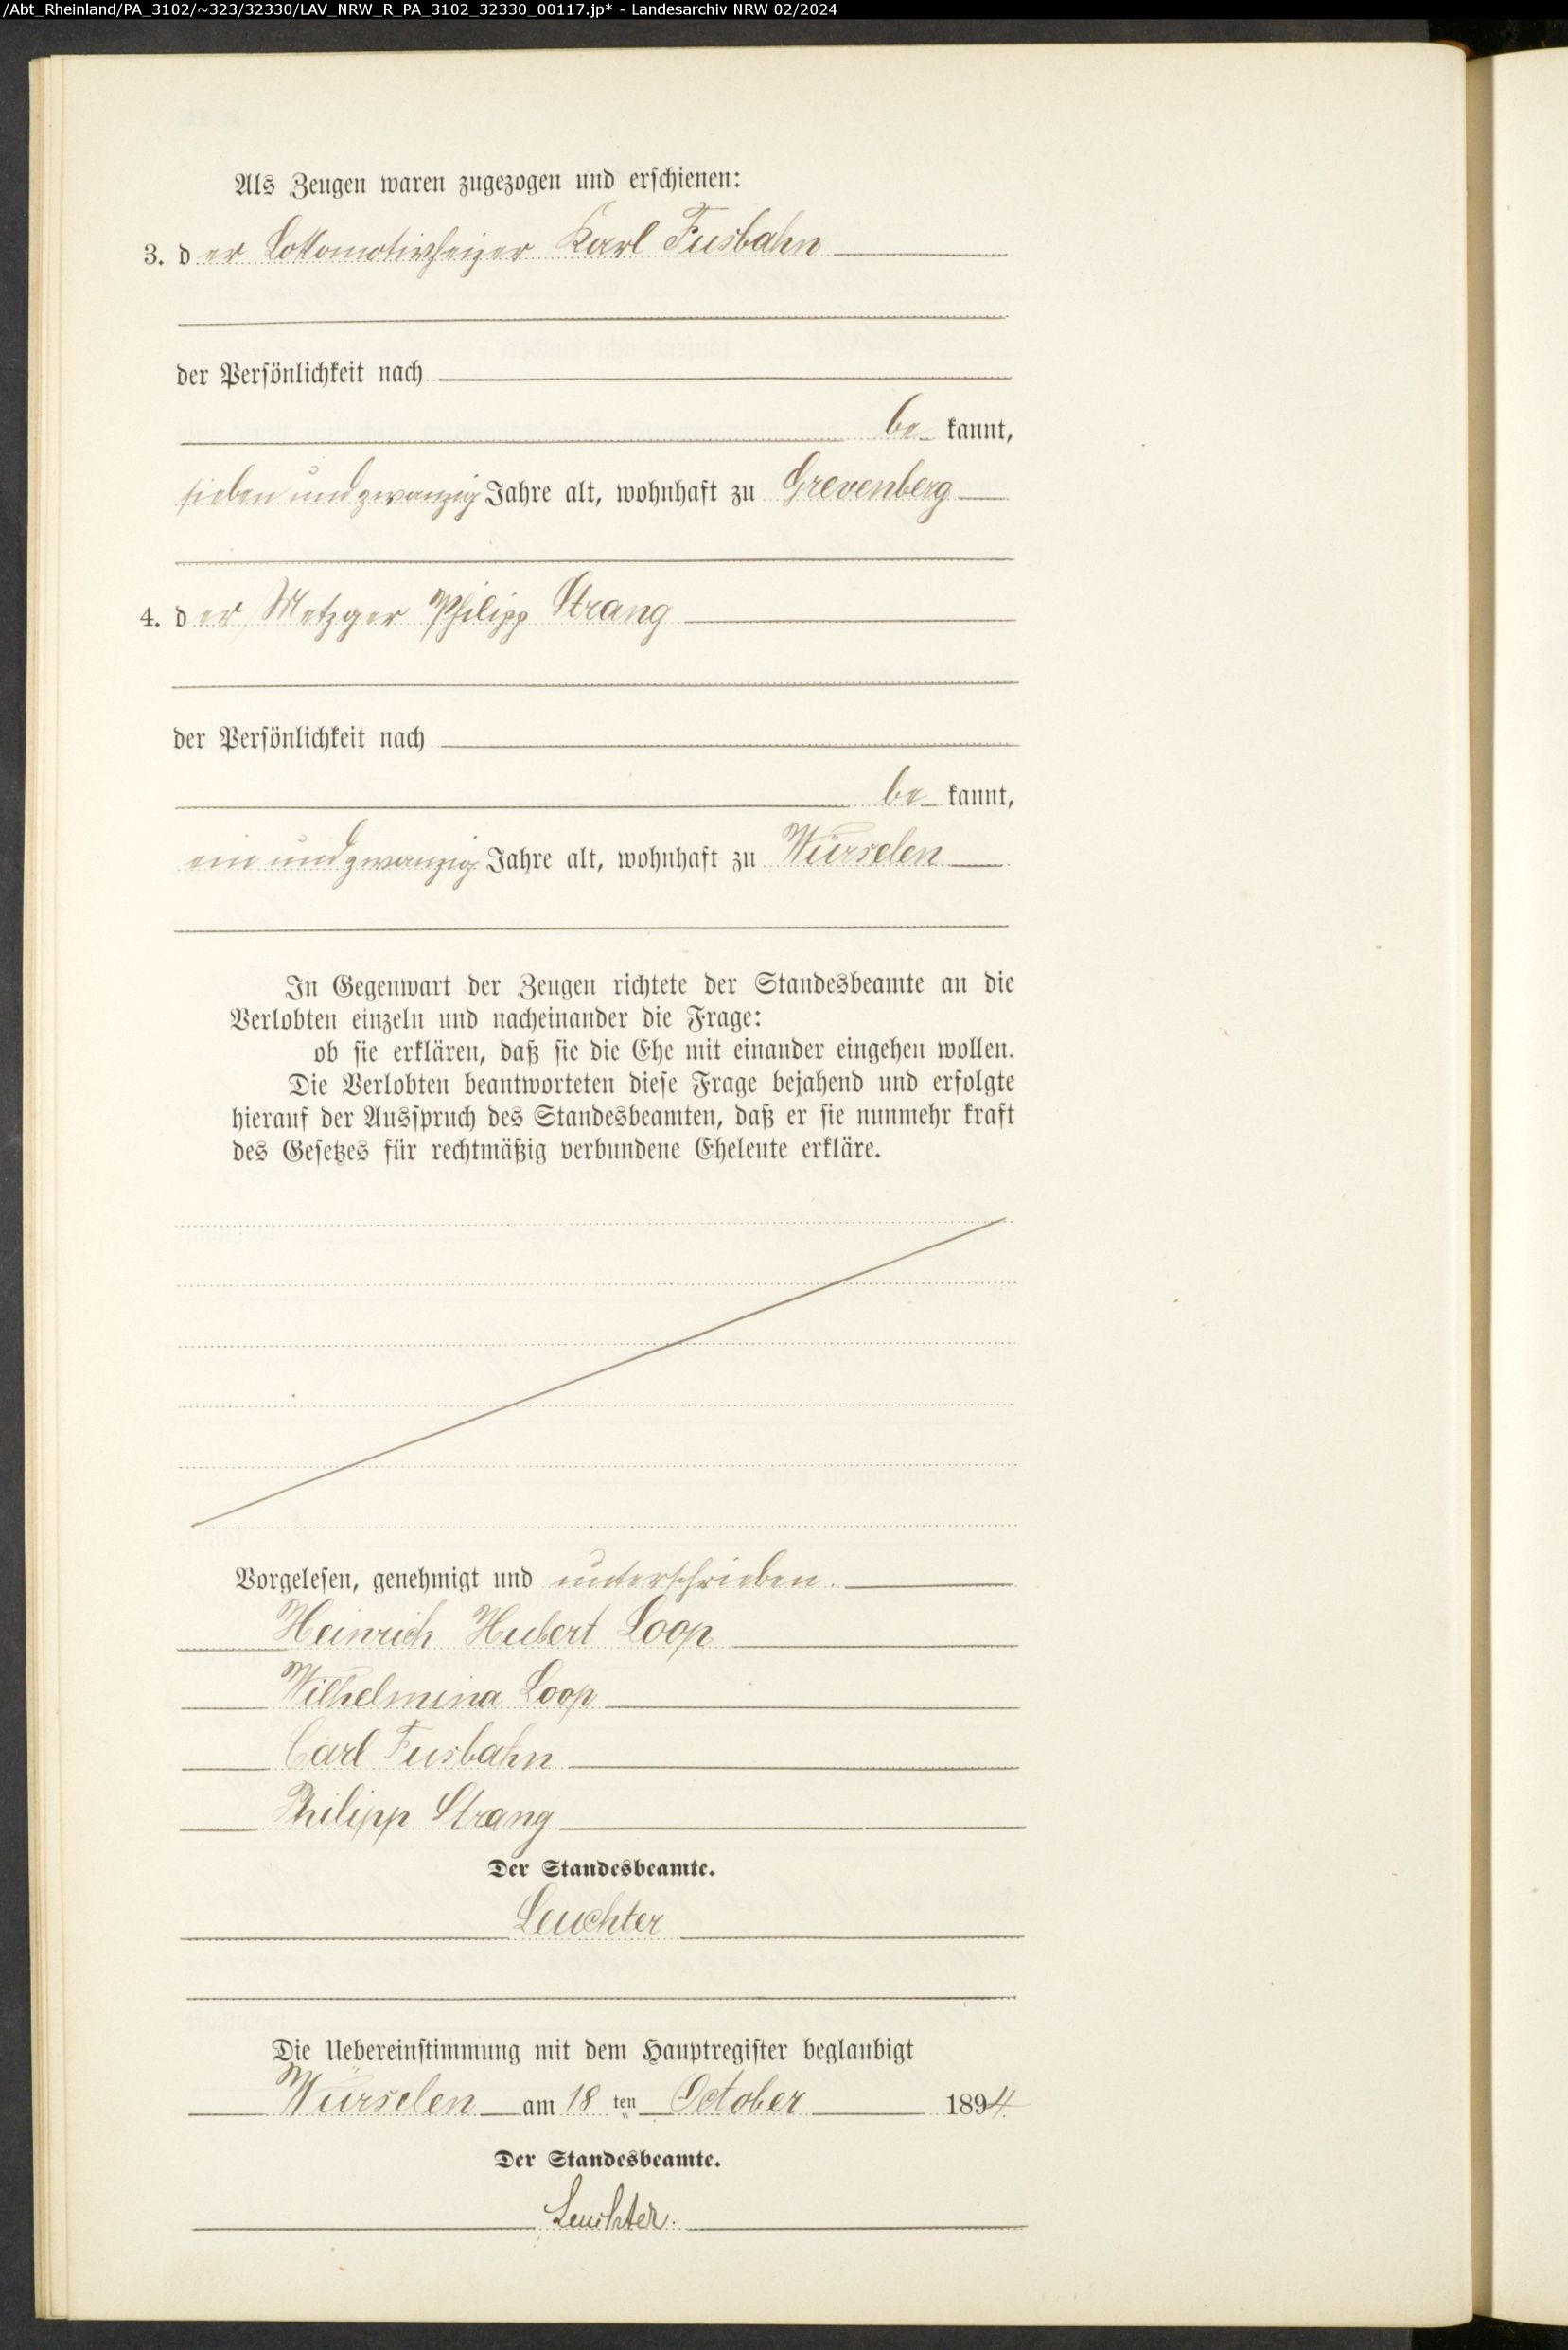 /Abt_Rheinland/PA_3102/~323/32330/LAV_NRW_R_PA_3102_32330_00117.jp* - Landesarchiv NRW 02/2024
Als Zeugen waren zugezogen und erschienen:
3. der Lokomotivheizer Karl Fusbahn
der Persönlichkeit nach
be kannt,
sieben und zwanzig Jahre alt, wohnhaft zu Grevenberg
4. der Metzger Philipp Strang
der Persönlichkeit nach
be kannt,
ein und zwanzig Jahre alt, wohnhaft zu Würselen
In Gegenwart der Zeugen richtete der Standesbeamte an die
Verlobten einzeln und nacheinander die Frage:
ob sie erklären, daß sie die Ehe mit einander eingehen wollen.
Die Verlobten beantworteten diese Frage bejahend und erfolgte
hierauf der Ausspruch des Standesbeamten, daß er sie nunmehr kraft
des Gesetzes für rechtmäßig verbundene Eheleute erkläre.
Vorgelesen, genehmigt und unterschrieben.
Heinrich Hubert Loop
Wilhelmina Loop
Carl Fusbahn
Philipp Strang
Der Standesbeamte.
Leuchter
Die Uebereinstimmung mit dem Hauptregister beglaubigt
Würselen am 18 ten October 1894.
Der Standesbeamte.
Leuchter.